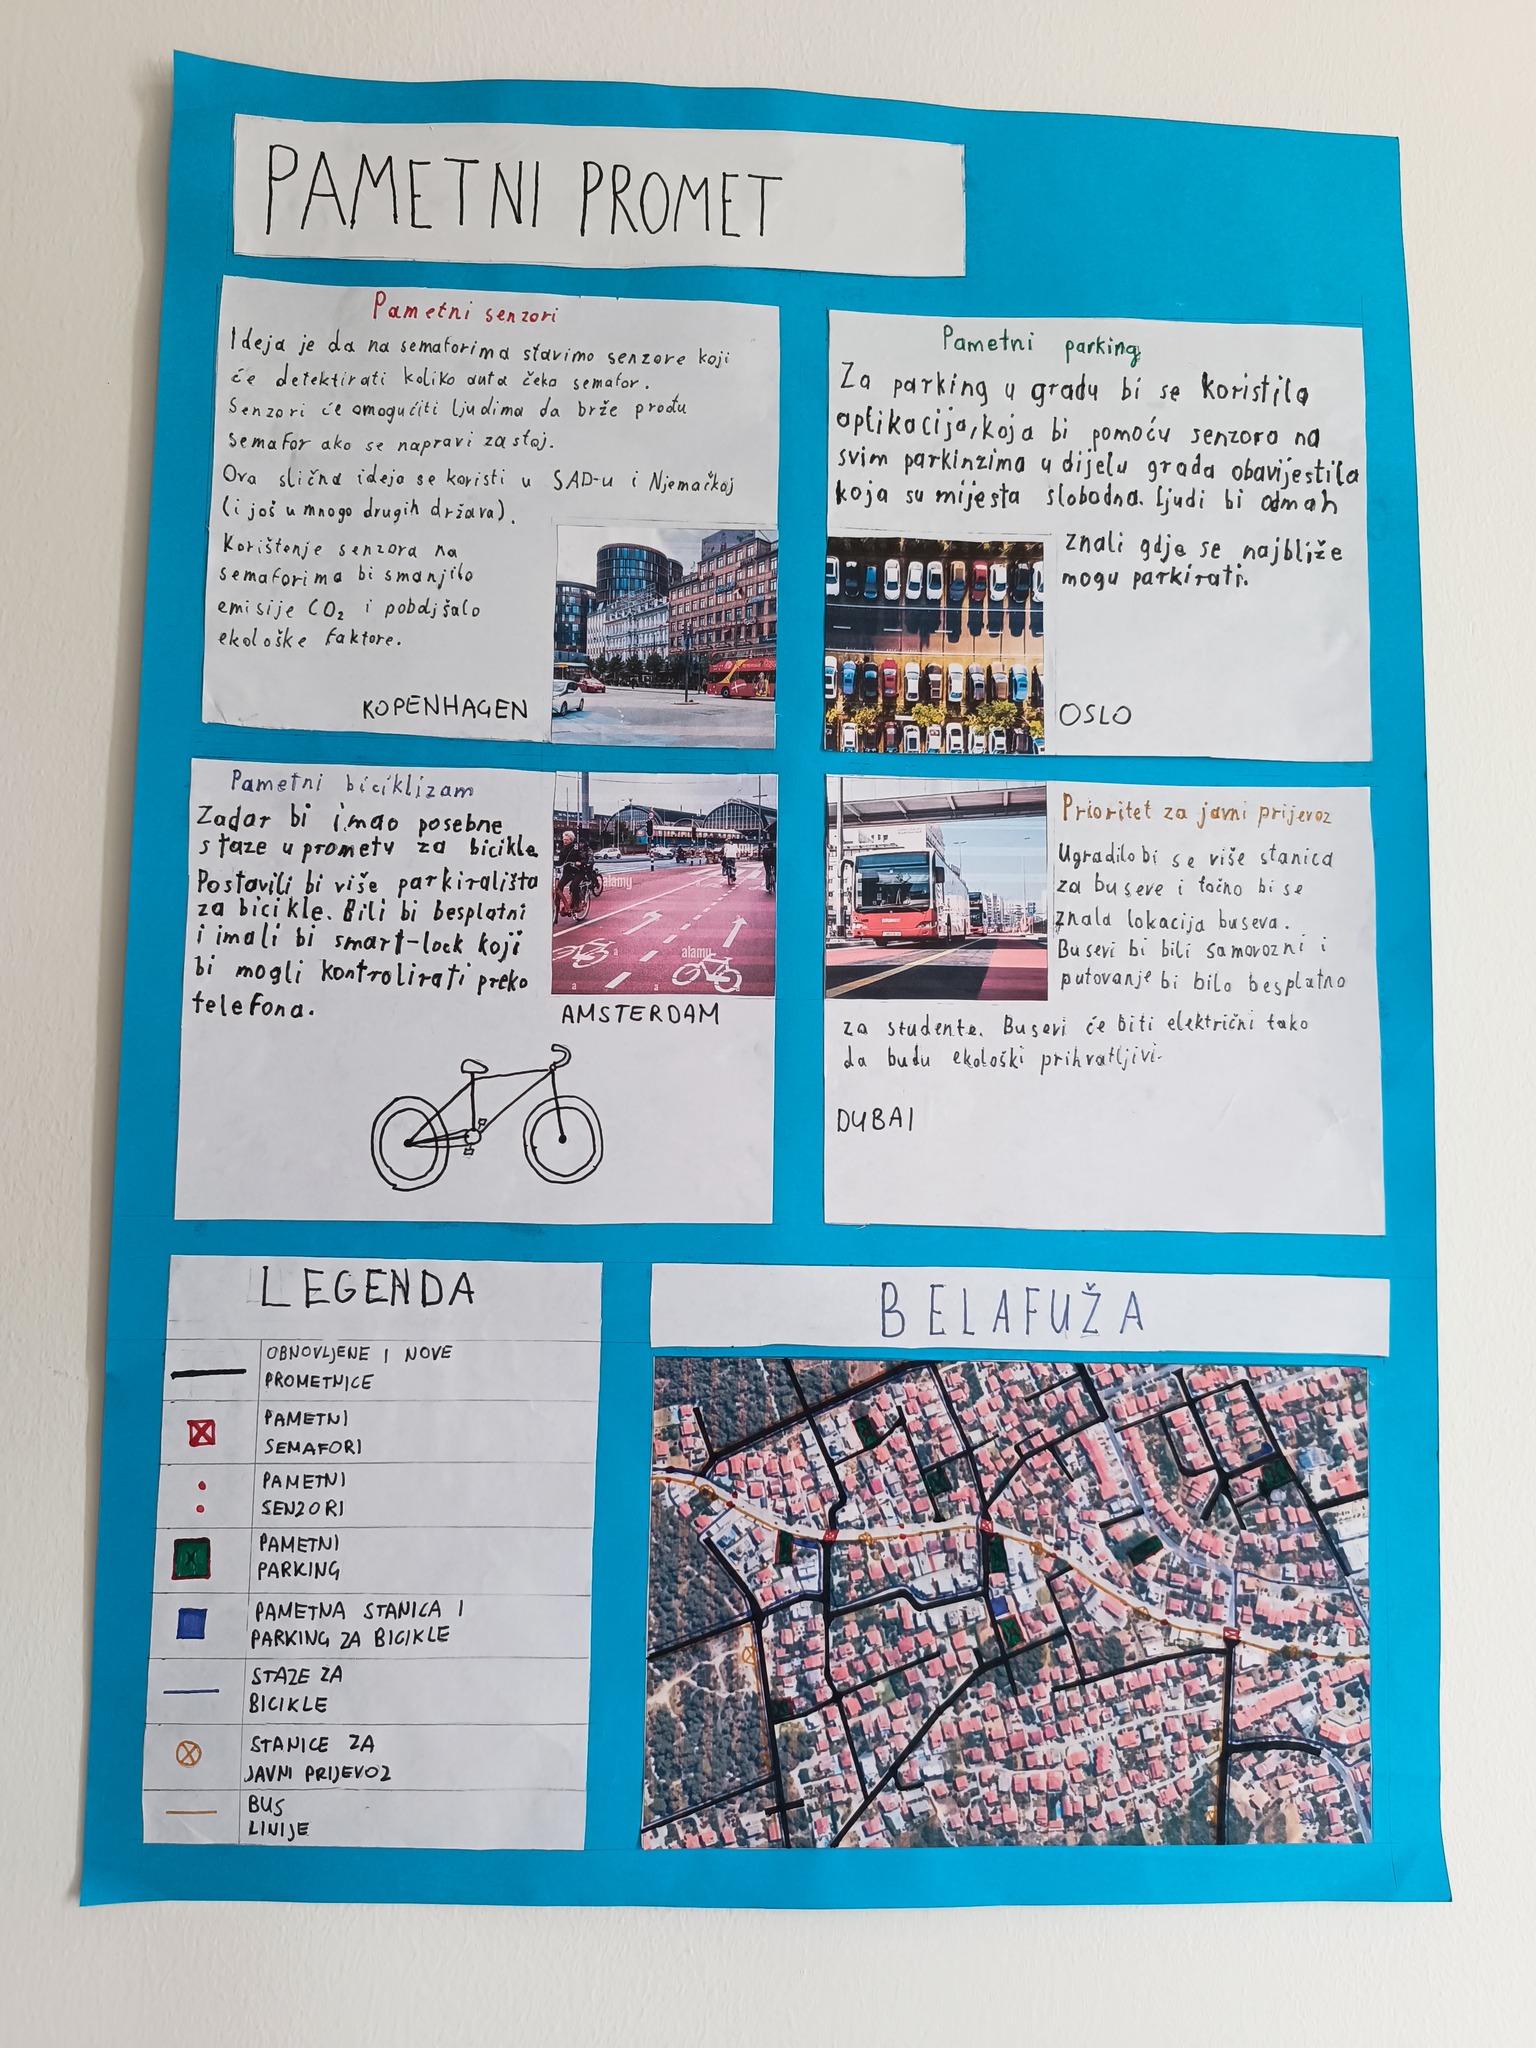 PAMETNI PROMET
Pametni senzori
Ideja je da na semaforima stavimo senzore koji
će detektirati koliko auta čeka semafor.
Senzori će omogućiti ljudima da brže prođu
semafor ako se napravi zastoj.
Ova slična ideja se koristi u SAD-u i Njemačkoj
(i još u mnogo drugih država).
Korištenje senzora na
semaforima bi smanjilo
emisije CO₂ i poboljšalo
ekološke faktore.
KOPENHAGEN
Pametni parking
Za parking u gradu bi se koristila
aplikacija, koja bi pomoću senzora na
svim parkinzima u dijelu grada obavijestila
koja su mijesta slobodna. Ljudi bi odmah
znali gdje se najbliže
mogu parkirati.
OSLO
Pametni biciklizam
Zadar bi imao posebne
staze u prometu za bicikle
Postavili bi više parkirališta
za bicikle. Bili bi besplatni
i imali bi smart-lock koji
bi mogli kontrolirati preko
telefona.
alamy
alamy
a
a
a
AMSTERDAM
Prioritet za javni prijevoz
Ugradilo bi se više stanica
za buseve i točno bi se
znala lokacija buseva.
Busevi bi bili samovozni i
putovanje bi bilo besplatno
za studente. Busevi će biti električni tako
da budu ekološki prihvatljivi.
DUBAI
LEGENDA
OBNOVLJENE I NOVE
PROMETNICE
PAMETNI
SEMAFORI
PAMETNI
SENZORI
PAMETNI
PARKING
PAMETNA STANICA I
PARKING ZA BICIKLE
STAZE ZA
BICIKLE
STANICE ZA
JAVNI PRIJEVOZ
BUS
LINIJE
BELAFUŽA